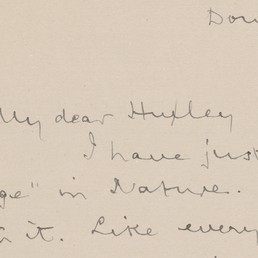 Dow
My dear Huxley
I have just
ge" in Nature.
it. Like every